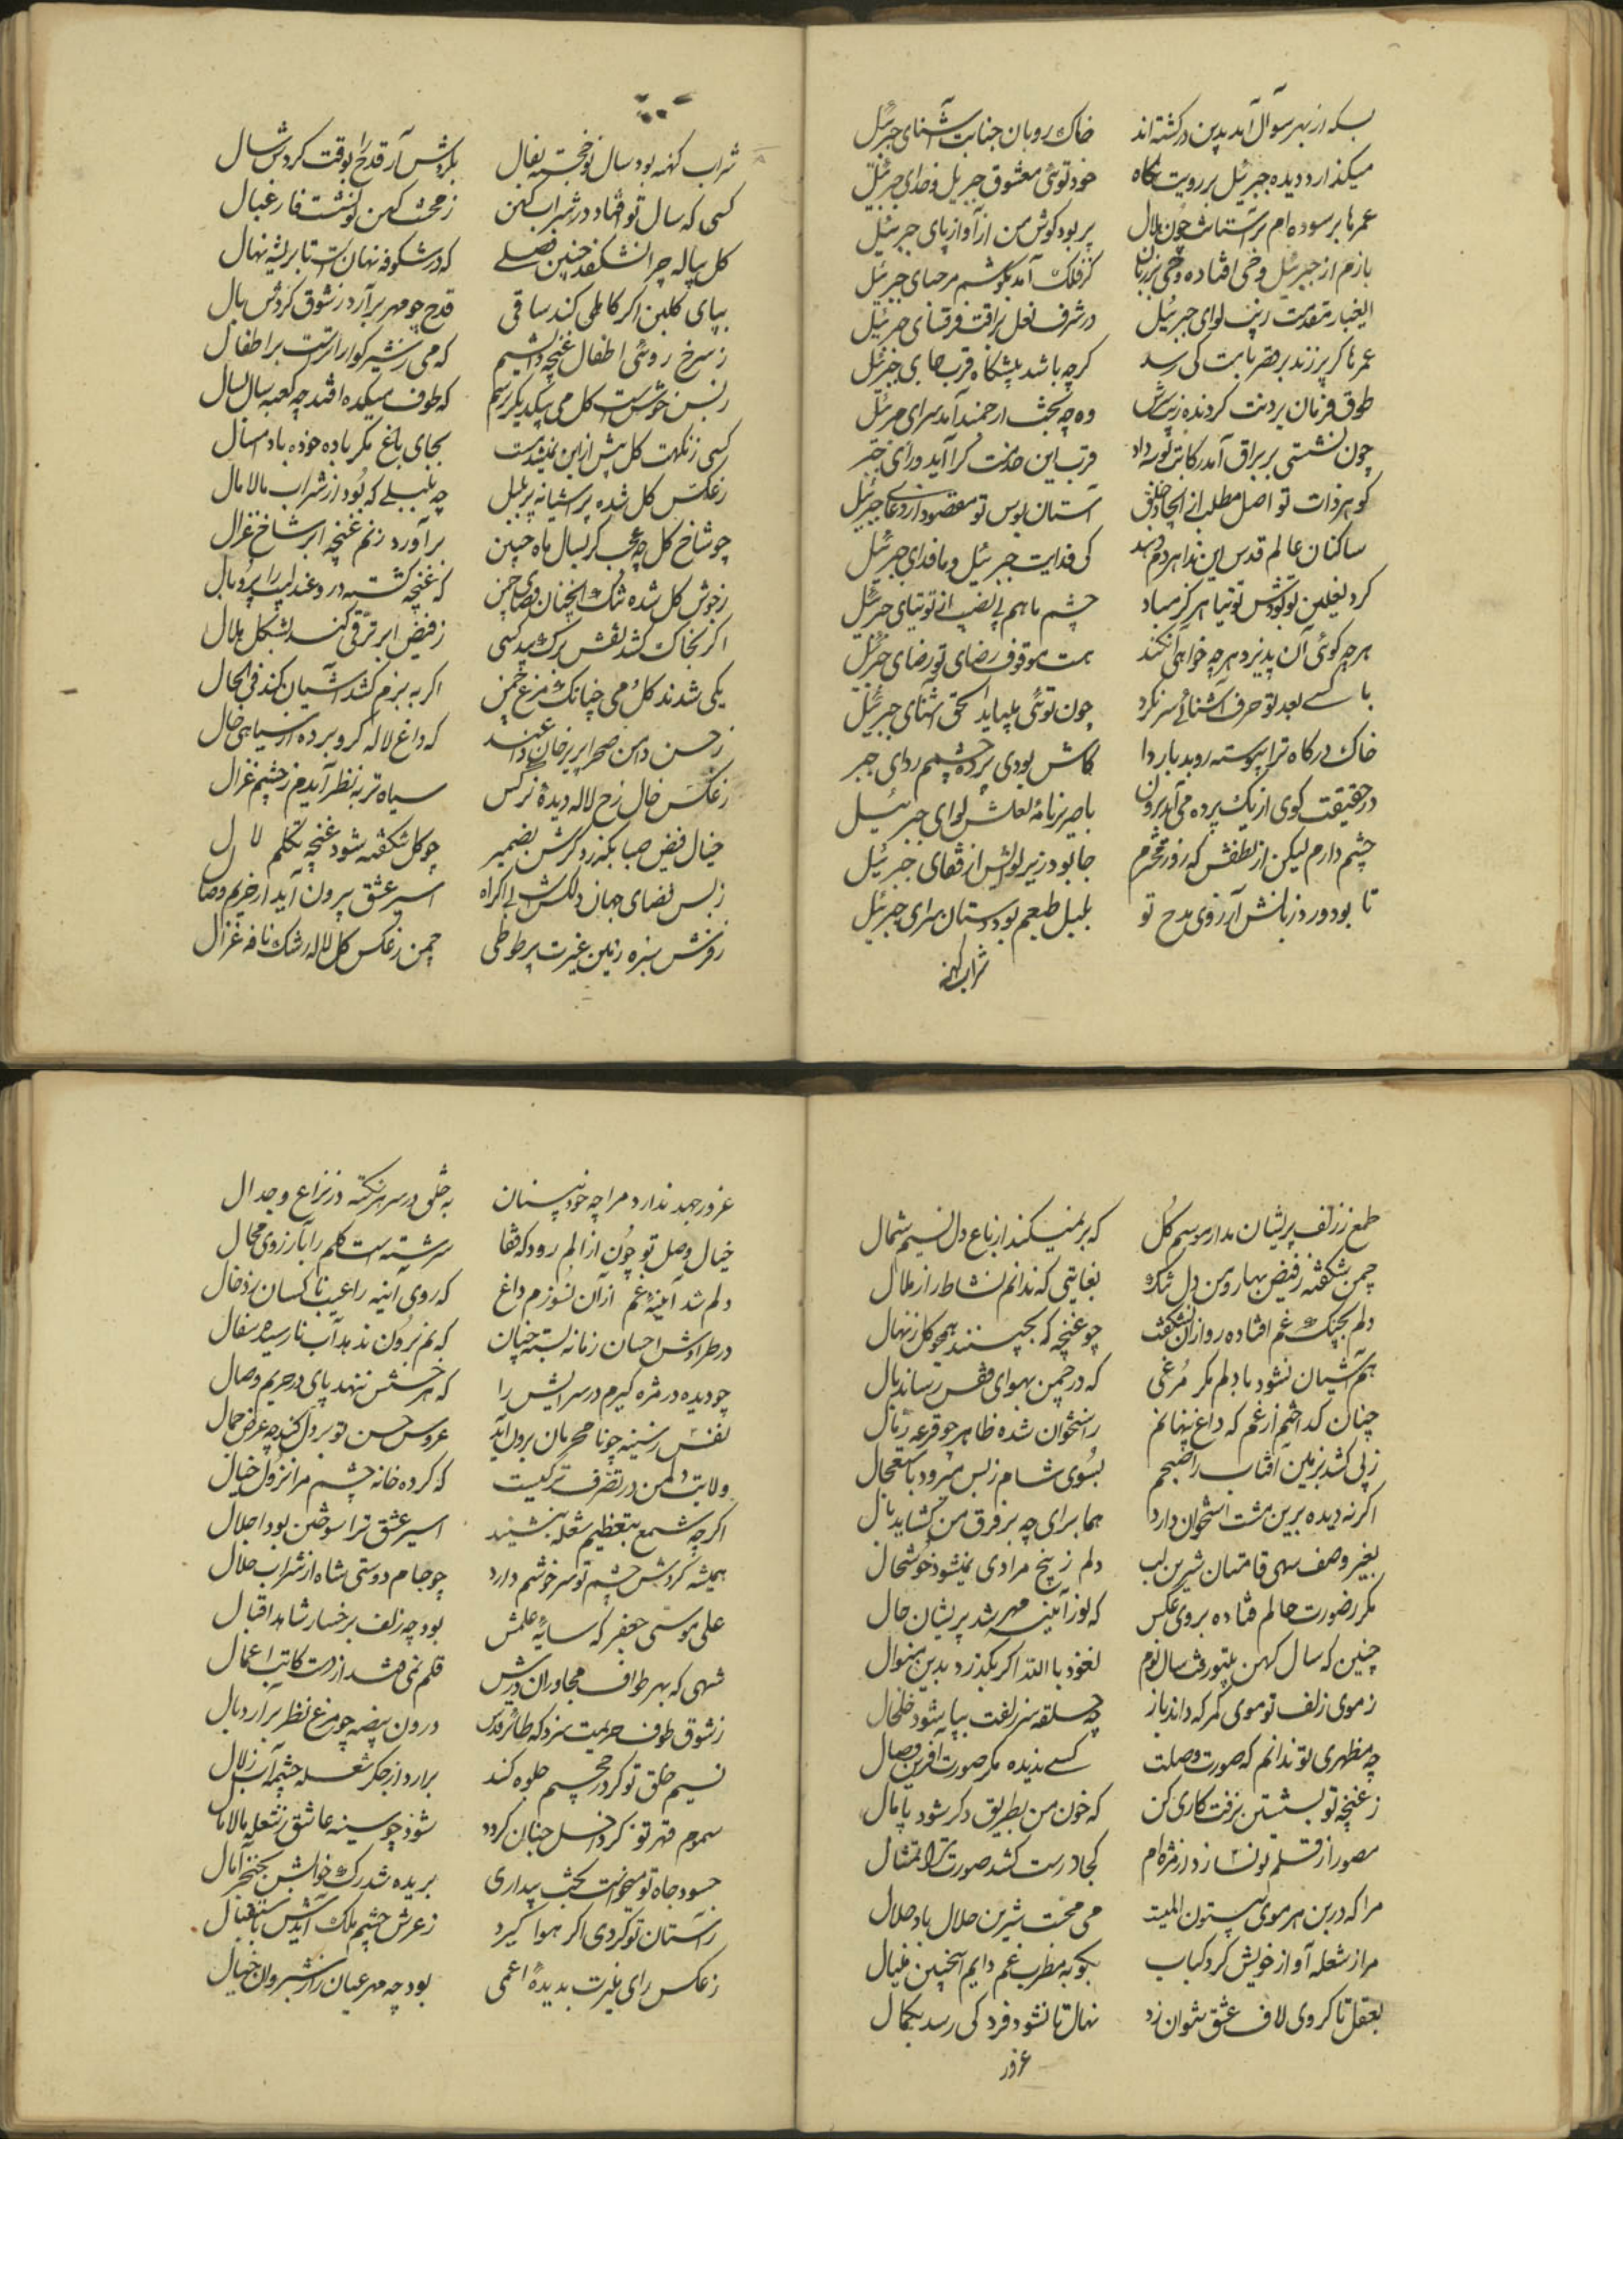 بسکه از بهر سوآل آمد بدین درکشته‌اند خاک روبان جنابت آشنای جبرئیل
میکذارد دیده جبرئیل بر رویت نکاه خود توئی معشوق جبریل و خدای جبرئیل
عمرها بر سوده‌ام بر آستانت چون هلال پر بود کوش من از آواز پای جبرئیل
بازم از جبرئیل وحی افتاده کز فلک آمد بکوشم مرحبای جبرئیل
لوای جبرئیل در شرف نعل براقت
عمرها کر پر زند بر قصر بابت کی رسد کرچه باشد پیشکاه قرب جای جبرئیل
طوق فرمان بردنت کردنده وه چه بخت ارجمند آمد سرای جبرئیل
چون نشستی بر براق آمد رکابت بوسه داد قرب این خدمت کرا آید ورای جبر
کوهر ذات تو اصل مطلب ایجاد خلق آستان بوس تو مقصود از دعای جبرئیل
ساکنان عالم قدس این ندا هر دم دهند کی فدایت جبرئیل و ما فدای جبرئیل
کرد نعلین تو هرکز مباد چشم ما هم بی نصیب از توتیای جبرئیل
هرچه کوئی آن پذیرد هرچه خواهی آن کند هست موقوف رضای تو رضای جبرئیل
با کسے بعد تو حرف آشنائے سر نکرد چون توئی باید الحق آشنای جبرئیل
خاک درکاه ترا پیوسته روبد باردا کاش بودی پرده چشمم ردای جبر
در حقیقت کوی از یک پرده می‌آید برون لوای جبرئیل
چشم دارم لیکن از لطفش که روز محشرم جا بود زیر لوایش از قفای جبرئیل
تا بود ورد زبانش آرزوی مدح تو بلبل طبعم بود دستان سرای جبرئیل
شراب کهنه
شراب کهنه بود سال نو خجسته بفال بکردش آر قدح را بوقت کردش سال
کسی که سال نو افتاد در شراب کهن ز محنت کهن
کل پیاله چرا نشکفد چنین فصلے که در شکوفه نهان است تا بریشه نهال
بپای کلبن اکر کاهلی کند ساقی قدح چو مهر برآرد ز شوق کردش بال
ز سرخ روئی اطفال غنچه دانستیم که می ز شیر کوارا ترست بر اطفال
که طوف میکده افتد چه کعبه سال بسال
کسی ز نکهت کل پیش ازین بجای باغ مکر باده خورده باد شمال
ز عکس کل شده پر آشیانه بلبل چه بلبلے که بود از شراب مالامال
چو شاخ کل چه عجب کر بسال ماه چنین برآورد ز نم غنچه ابر شاخ غزال
ز جوش کل شده تنک آنچنان فضای چمن که غنچه کشته در و عندلیب را پر و بال
اکر بخاک کشد نقش برک بید کسی ز فیض ابر ترقی کند بشکل هلال
یکی شدند کل و می چنانکه مرغ چمن اکر به بزم کشد آشیان کند فی الحال
ز حسن دامن صحرا که داغ لاله کرو برده از سیاهی خال
ز عکس خال رخ لاله دیدهٔ نرکس سیاه تر به نظر آیدم ز چشم غزال
خیال فیض صبا بکذرد کرش بضمیر چو کل شکفته شود غنچه تکلم لال
ز بس فضای جهان دلکش است بی اکراه اسیر عشق برون آید از حریم وصا
ز فرش سبزه زمین غیرت پر طوطی چمن ز عکس کل لاله رشک نافه غزال
طمع ز زلف پریشان مدار موسم کل که بر نمیکند از باغ دل نسیم شمال
چمن شکفته ز فیض بهار و من دل تنک بغایتی که ندانم نشاط را ز ملال
دلم بچنک غم افتاده رو از آن نشکفت چو غنچه که بچینند همچو کل ز نهال
هم آشیان نشود با دلم مکر مرغی که در چمن بهوای قفس رساند بال
چنان کداختم از غم که داغ پنهانم ز استخوان شده ظاهر چو قرعه رمال
ز پی کشد بزمین آفتاب را صبحم بسوی شام ز بس میرود باستعجال
اکر نه دیده برین مشت استخوان دارد هما برای چه بر فرق من کشاید بال
بغیر وصف سهی قامتان شیرین لب دلم ز هیچ مرادی نمیشود خوشحال
مکر ز صورت حالم فتاده بروی عکس که لوز آینه مهر شد پریشان حال
چنین که سال کهن بیتو رفت سال نوم نعوذ بالله اکر بکذرد بدین منوال
ز موی زلف تو موی کمر که داند باز چه حلقه سر زلفت بپا شود خلخال
چه مظهری تو ندانم که صورت وصلت کسے ندیده مکر صورت آفرین وصال
ز غنچه تو که خون من بطریق دکر شود پامال
مصور از قلم تو نسازد از مژه‌ام کجا درست کشد صورت ترا تمثال
مرا که در بن هر موی بیستون المیت می محبت شیرین حلال باد حلال
مرا ز شعله آواز خویش کرد کباب بکو به مطرب غم دایم اینچنین غمی نال
بعقل تا کروی لاف عشق نتوان زد نهال تا نشود فرد کی رسد بکمال
غرور
غرور جهد ندارد مرا چه خود بینان به خلق در سر هر نکته در نزاع و جدال
خیال وصل تو چون از دلم رود که قضا سرشته است کلم را بآرزوی محال
دلم شد آینهٔ غم از آن بسوزم داغ که روی آینه را عیب ناکسان
در طراوش احسان زمانه بسته چنان که نم برون ندهد آب نارسیده سفال
چو دیده در مژه کیرم در سرایش را که هر خسش ننهد پای در حریم وصال
نفس ز سینه چو نامحرمان برون آید عروس حسن تو بر دل کند چه عرض جمال
ولایت دل من در تصرف ترکیست که کرده خانه چشم مرا نزول خیال
اکر چه شمع بتعظیم شعله بنشیند اسیر عشق ترا سوختن بود اجلال
همیشه کردش چشم تو سرخوشم دارد چو جام دوستی شاه از شراب حلال
علی موسی جعفر که سایهٔ علمش بود چه زلف بر رخسار شاهد اقبال
شهی که بهر طواف مجاوران درش قلم نمی فتد از دست کاتب اعمال
ز شوق طوف حریمت سزد که طائر قدس درون بیضه چو مرغ نظر برآرد بال
نسیم خلق تو کر در جحیم جلوه کند برارد از جکر شعله چشمه آب زلال
سموم قهر تو کر داخل جنان کردد شود چو سینه عاشق ز شعله مالاما
حسود جاه تو میخواست بخت بیداری بریده شد رک خوابش بخنجر آمال
ز آستان تو کردی اکر هوا کیرد ز عرش چشم ملک آیدش باستقبال
ز عکس رای منیرت بدیدهٔ اعمی بود چه مهر عیان راز شبروان خیال